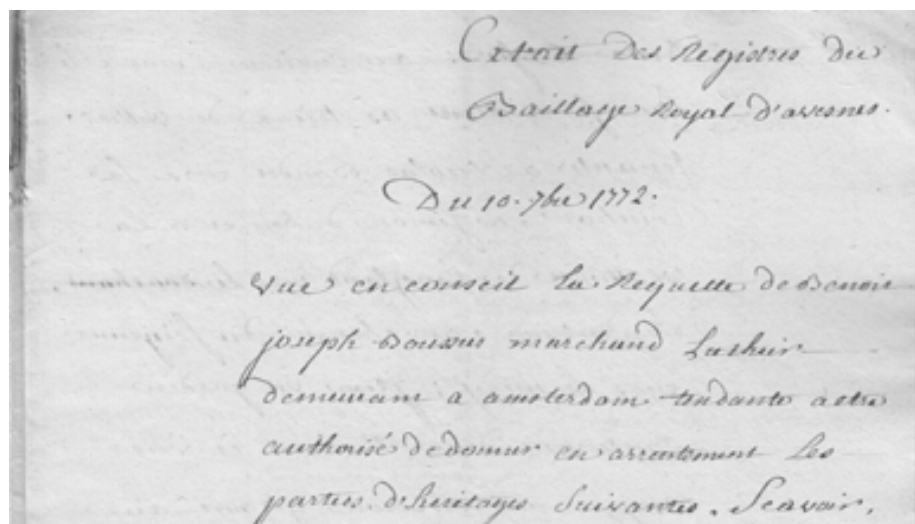 Extrait Des Registres du
Baillage Royal d'avesnes.
Du 10. 7bre 1772.
Vue en conseil La Requette de Benoit
joseph marchand
demeurant a amsterdam tendante a etre
authorisé de donner en arrentement Les
parties d'heritages Suivantes. Scavoir.